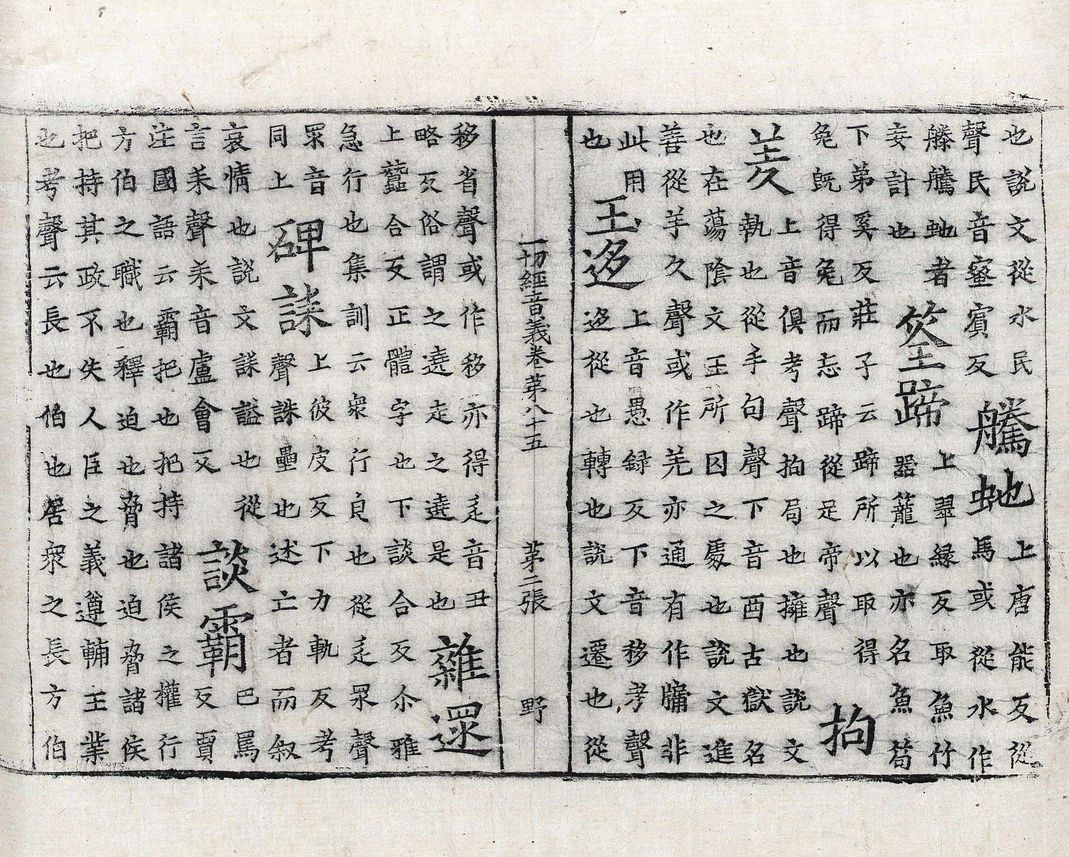 也說文從水民
聲民音蜜賓反
騰虵
上唐能反從
馬或從水作
螣騰虵者
妄計也
筌蹄
上翠緣反取魚竹
器籠也亦名魚笱
下弟奚反莊子云蹄所以取得
兔既得兔而忘蹄從足帝聲
拘
羑
上音俱考聲拘局也擁也說文
執也從手句聲下音酉古獄名
也在蕩陰文王所囚之處也說文進
善從羊久聲或作羌亦通有作牖非
此用
也
玉迻
上音愚録反下音移考聲
迻從也轉也說文遷也從
一切經音義卷第八十五 第二張 野
移省聲或作移亦得辵音丑
略反俗謂之遶走之遶是也
雜遝
上蠶合反正體字也下談合反尒雅
急行也集訓云衆行皃也從辵眔聲
眔音
同上
碑誄
上彼皮反下力軌反考
聲誄壘也述亡者而叙
哀情也說文誄謚也從
言耒聲耒音盧會反
談霸
巴罵
反賈
注國語云霸把也把持諸侯之權行
方伯之職也釋迫也脅也迫脅諸侯
把持其政不失人臣之義遵輔王業
也考聲云長也伯也居衆之長方伯